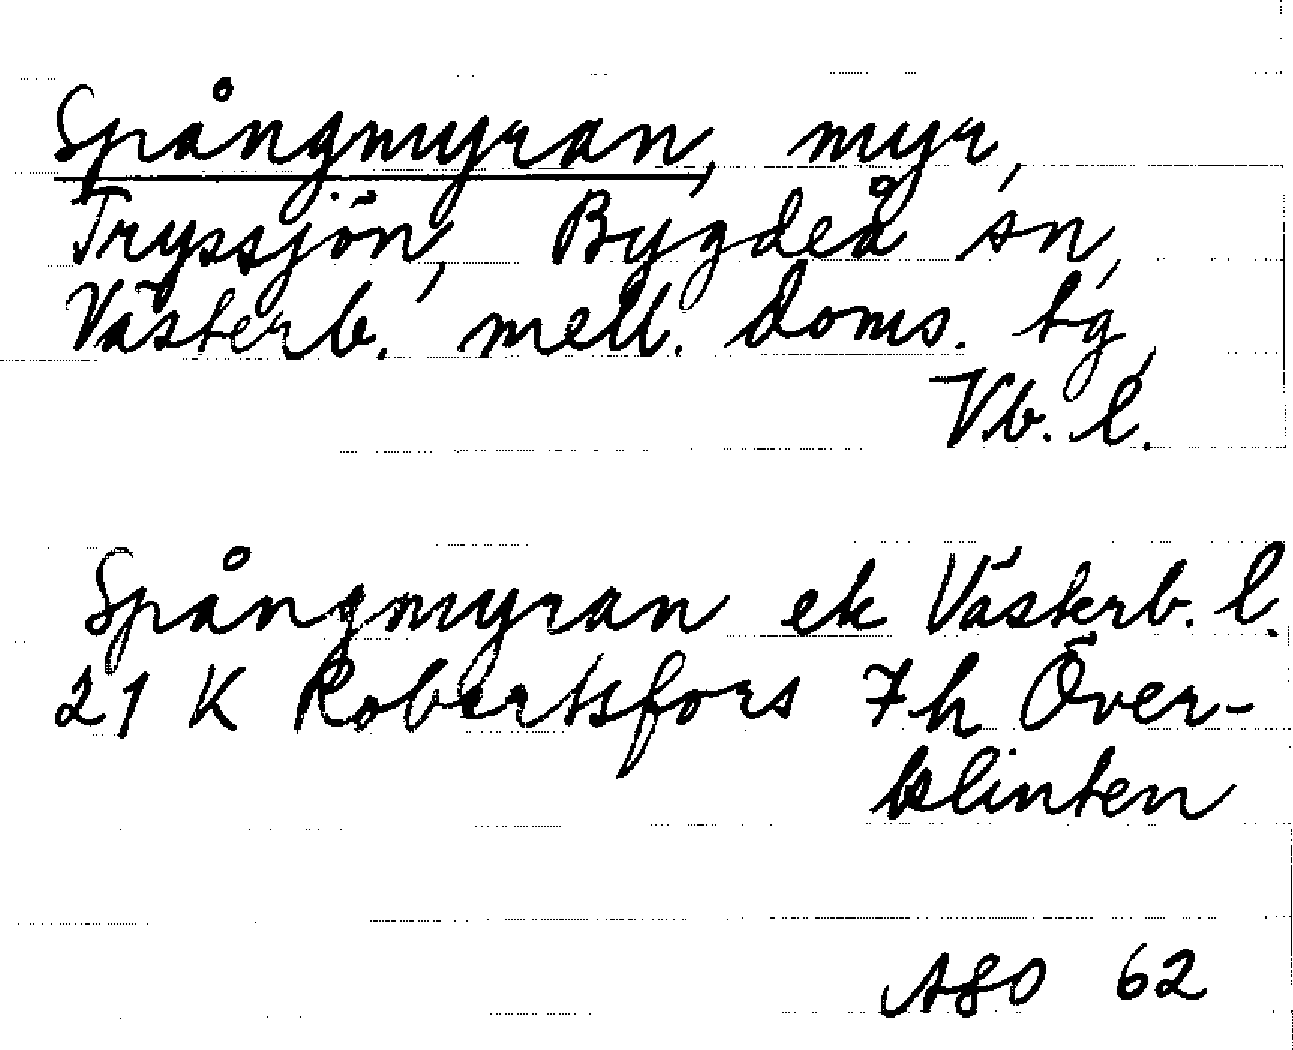 Spångmyran, myr,
Tryssjön, Bygdeå sn,
Västerb. mell. doms. tg,
Vb. l.
Spångmyran ek Västerb. l.
21 K Robertsfors 7h Över-
klinten
62